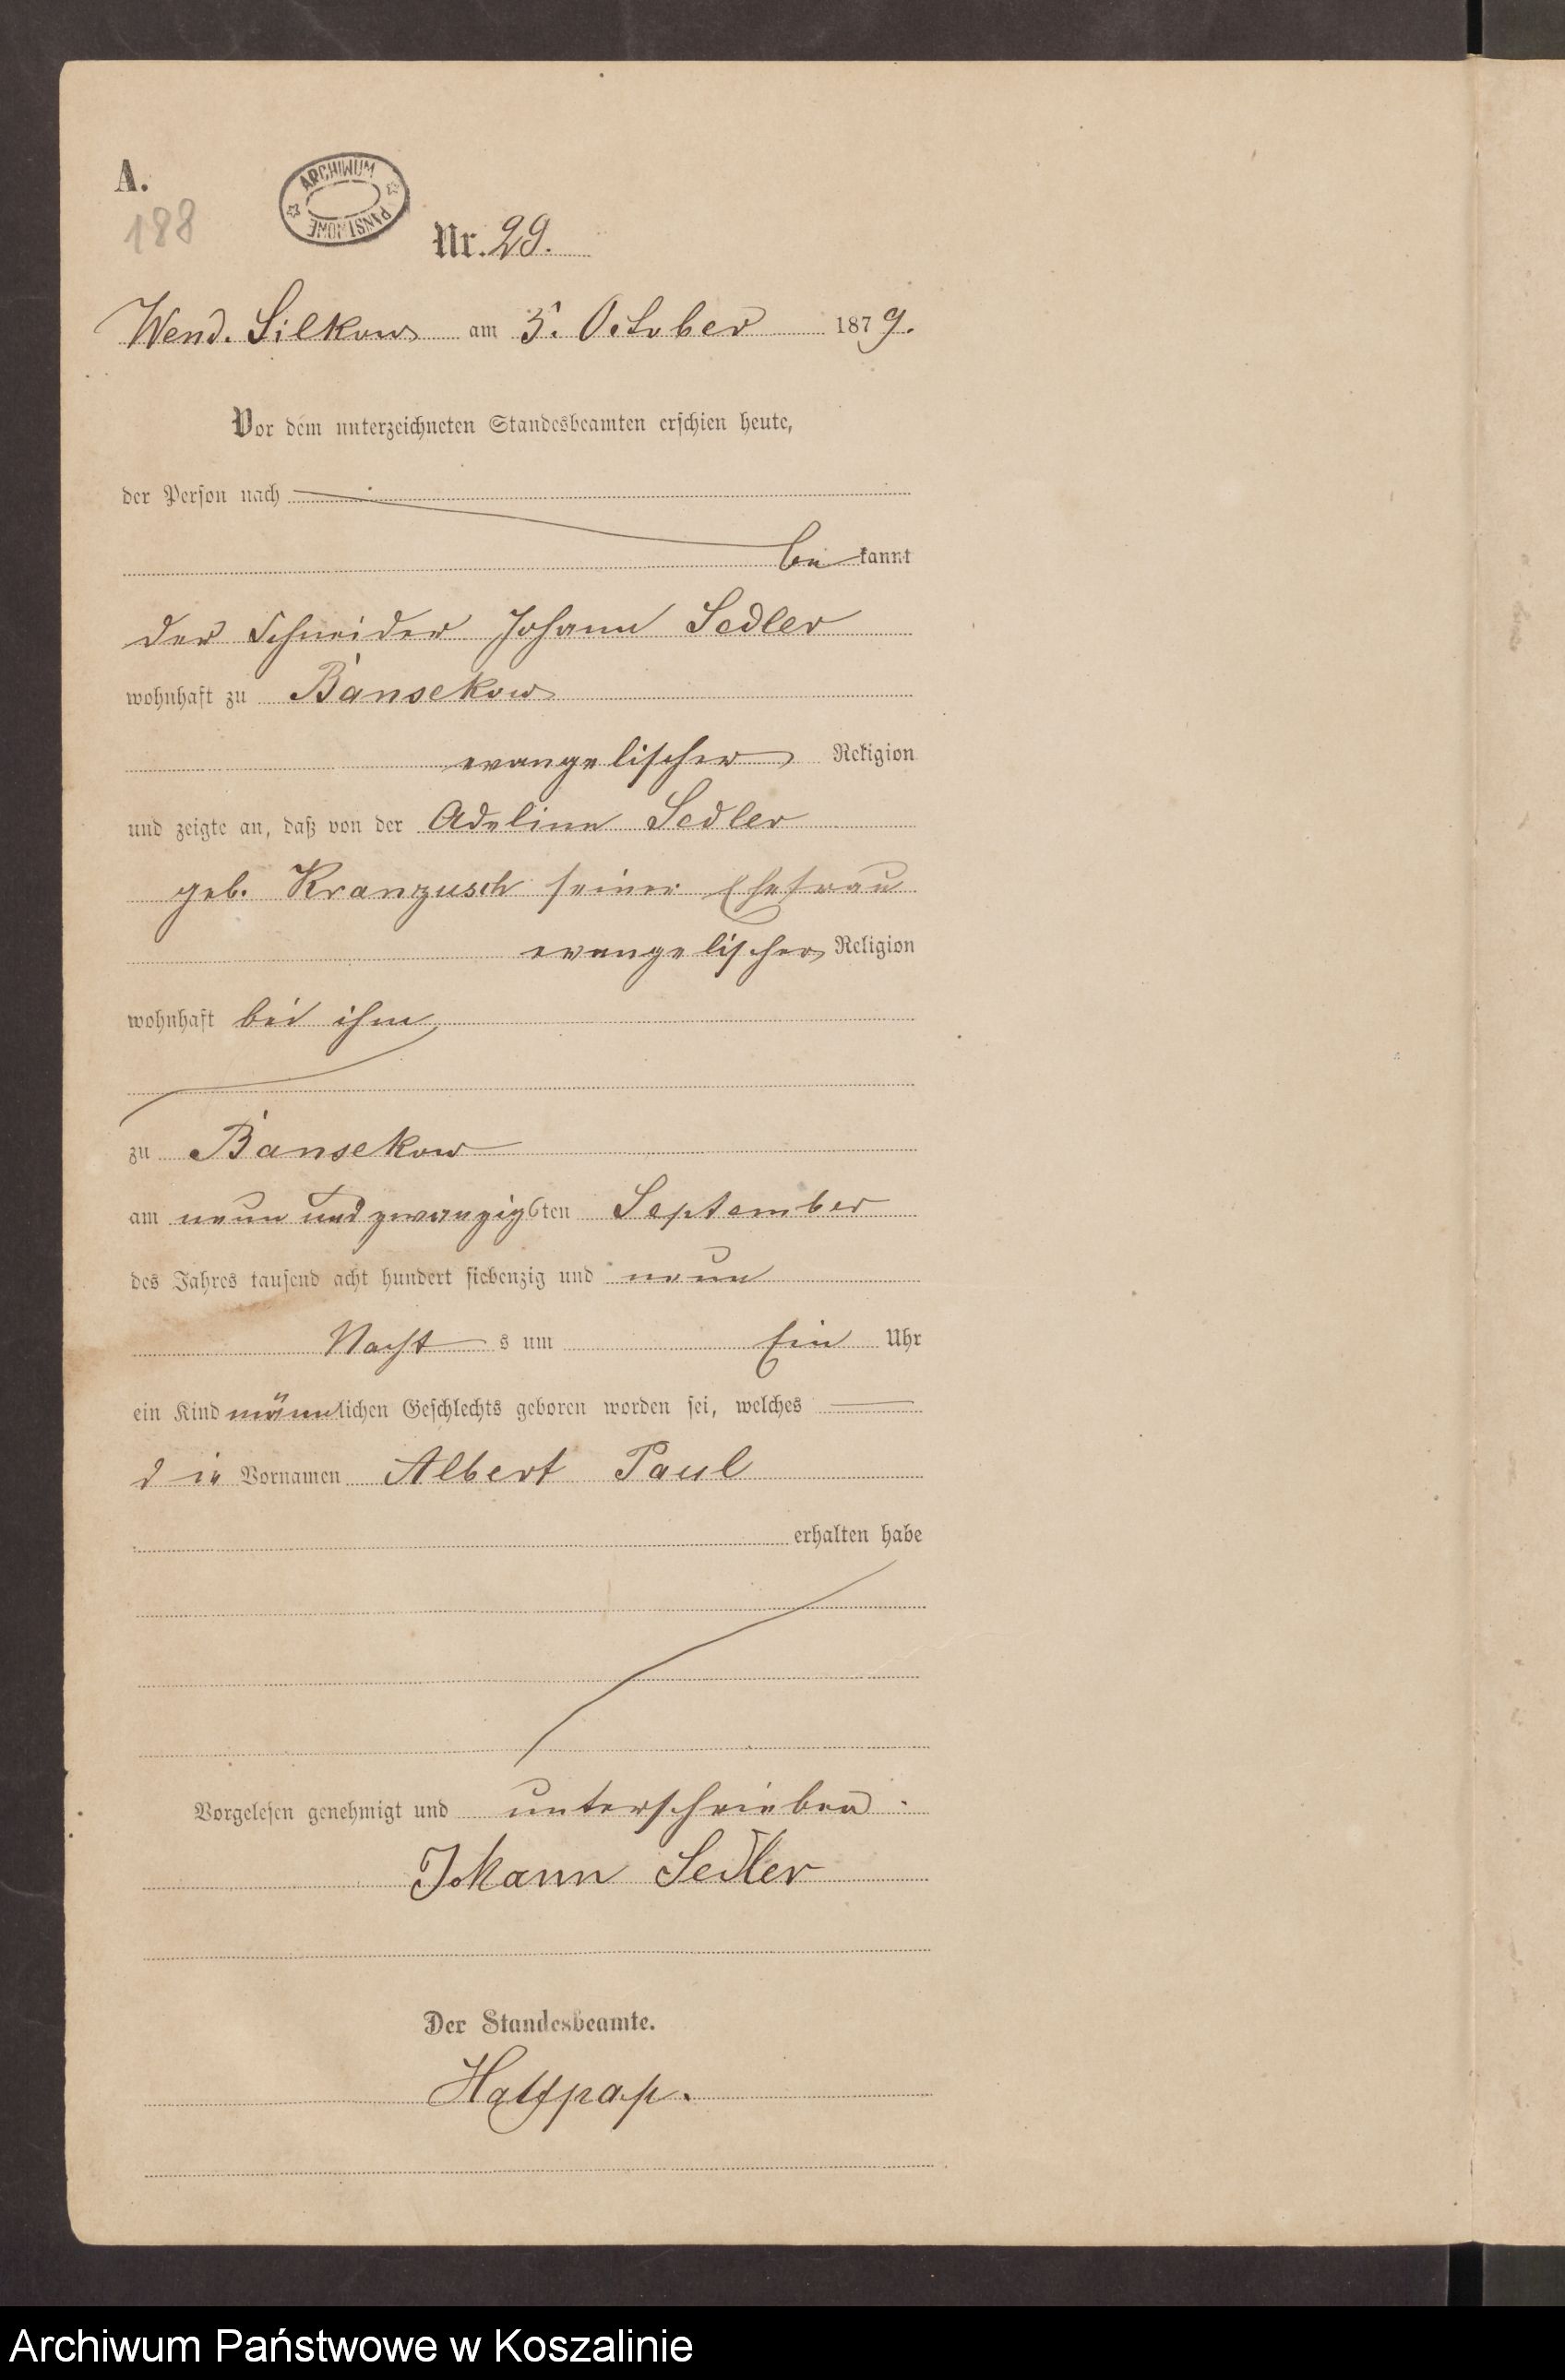 A.
188
ARCHIWUM PAŃSTWOWE
Nr. 29.
Wend. Silkow am 5. October 1879.
Vor dem unterzeichneten Standesbeamten erschien heute,
der Person nach
bekannt
der Schneider Johann Sedler
wohnhaft zu Bansekow
evangelischer Religion
und zeigte an, daß von der Adeline Sedler
geb. Kranzusch seiner Ehefrau
evangelischer Religion
wohnhaft bei ihm
zu Bansekow
am neun und zwanzigsten September
des Jahres tausend acht hundert siebenzig und neun
Nachts um Ein Uhr
ein Kind männlichen Geschlechts geboren worden sei, welches
die Vornamen Albert Paul
erhalten habe
Vorgelesen genehmigt und unterschrieben.
Johann Sedler
Der Standesbeamte.
Archiwum Państwowe w Koszalinie